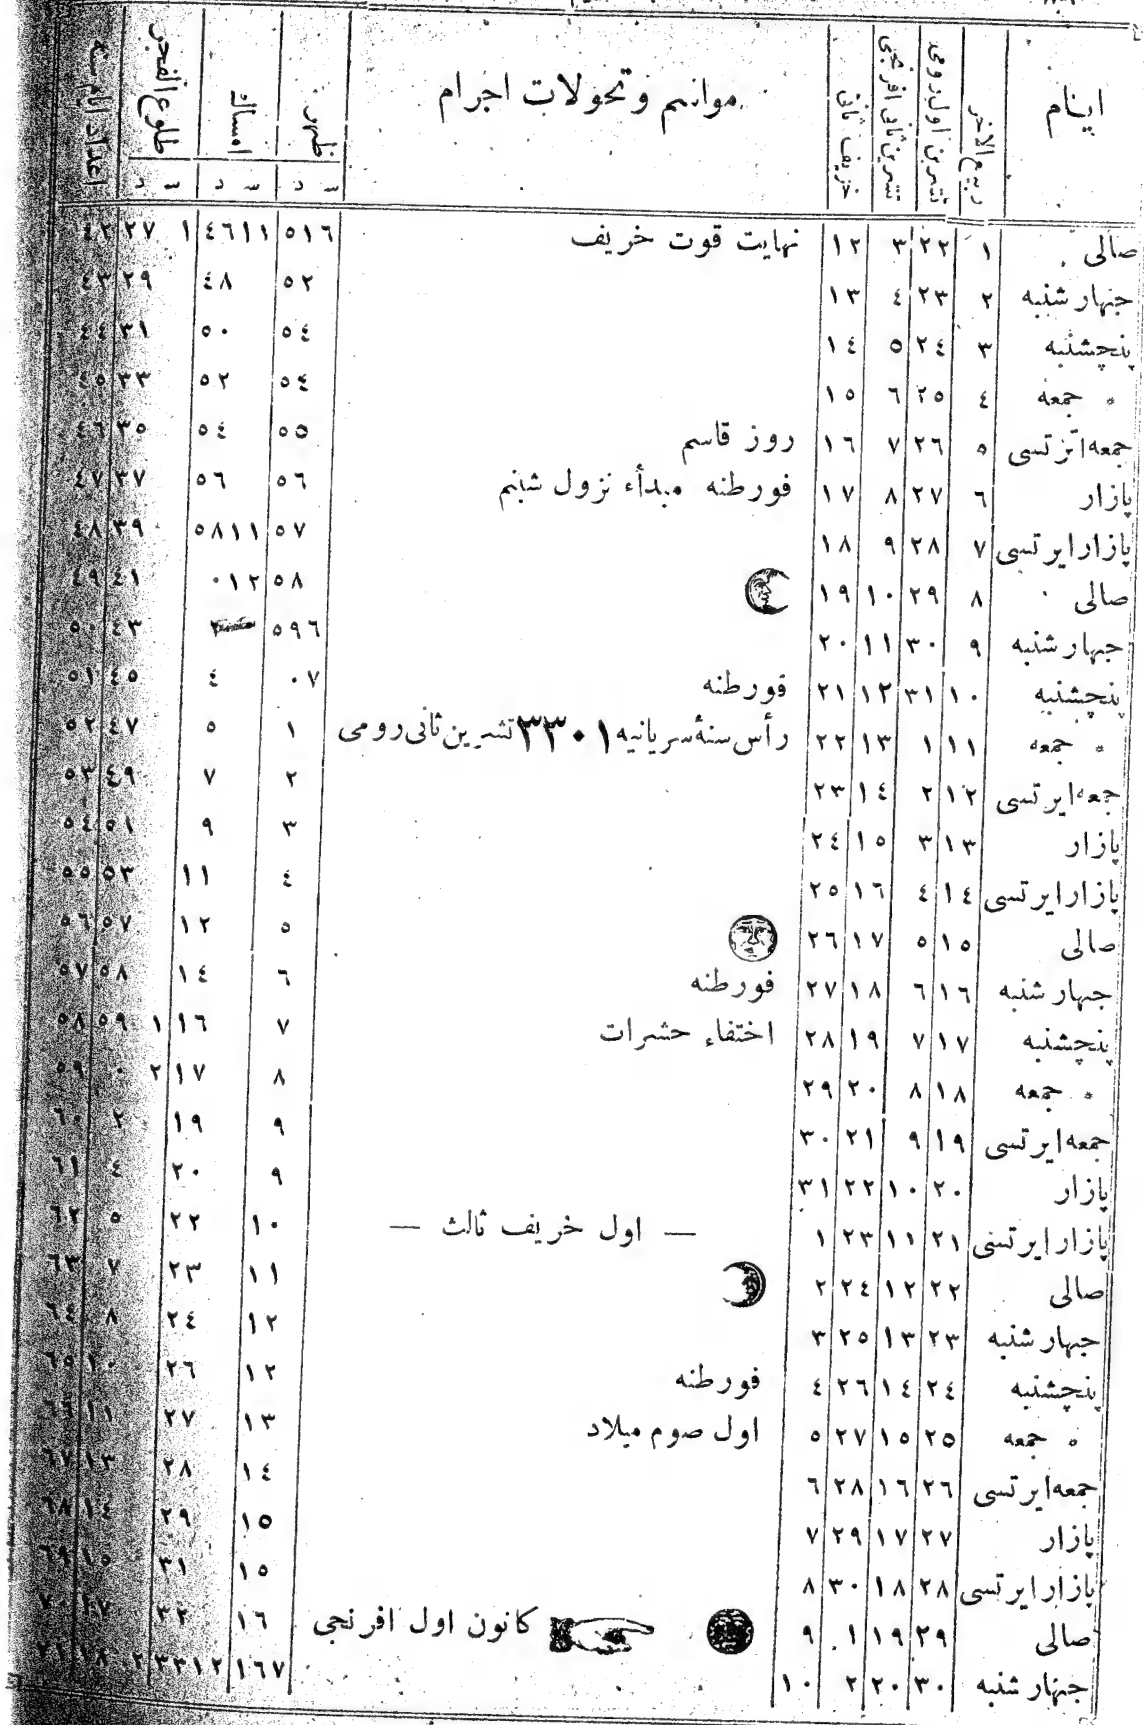 ايام ربيع الاخر تشرين اول رومى تشرين ثانى افرنجى خزيف ثانى مواسم وتحولات اجرام ظهر امساك طلوع الفجر اعداد ايام سنه
س د س د س د
صالى ١ ٢٢ ٣ ١٢ نهايت قوت خريف ٦ ٥١ ١١ ٤٦ ١ ٢٧ ٤٢
جهار شنبه ٢ ٢٣ ٤ ١٣ ٥٢ ٤٨ ٢٩ ٤٣
پنجشنبه ٣ ٢٤ ٥ ١٤ ٥٤ ٥٠ ٣١ ٤٤
* جمعه ٤ ٢٥ ٦ ١٥ ٥٤ ٥٢ ٣٣ ٤٥
جمعه ايرتسى ٥ ٢٦ ٧ ١٦ روز قاسم ٥٥ ٥٤ ٣٥ ٤٦
پازار ٦ ٢٧ ٨ ١٧ فورطنه مبدأء نزول شبنم ٥٦ ٥٦ ٣٧ ٤٧
پازار ايرتسى ٧ ٢٨ ٩ ١٨ ٥٧ ١١ ٥٨ ٣٩ ٤٨
صالى ٨ ٢٩ ١٠ ١٩ ٥٨ ١٢ ٠ ٤١ ٤٩
جهار شنبه ٩ ٣٠ ١١ ٢٠ ٦ ٥٩ ٢ ٤٣ ٥٠
پنجشنبه ١٠ ٣١ ١٢ ٢١ فورطنه ٧ ٠ ٤ ٤٥ ٥١
* جمعه ١١ ١ ١٣ ٢٢ رأس سنۀ سريانيه ٣٣٠١ تشرين ثانى رومى ١ ٥ ٤٧ ٥٢
جمعه ايرتسى ١٢ ٢ ١٤ ٢٣ ٢ ٧ ٤٩ ٥٣
پازار ١٣ ٣ ١٥ ٢٤ ٣ ٩ ٥١ ٥٤
پازار ايرتسى ١٤ ٤ ١٦ ٢٥ ٤ ١١ ٥٣ ٥٥
صالى ١٥ ٥ ١٧ ٢٦ ٥ ١٢ ٥٧ ٥٦
جهار شنبه ١٦ ٦ ١٨ ٢٧ فورطنه ٦ ١٤ ٥٨ ٥٧
پنجشنبه ١٧ ٧ ١٩ ٢٨ اختفاء حشرات ٧ ١٦ ١ ٥٩ ٥٨
* جمعه ١٨ ٨ ٢٠ ٢٩ ٨ ١٧ ٢ ٠ ٥٩
جمعه ايرتسى ١٩ ٩ ٢١ ٣٠ ٩ ١٩ ٢ ٦٠
پازار ٢٠ ١٠ ٢٢ ٣١ ٩ ٢٠ ٤ ٦١
پازار ايرتسى ٢١ ١١ ٢٣ ١ — اول خريف ثالث — ١٠ ٢٢ ٥ ٦٢
صالى ٢٢ ١٢ ٢٤ ٢ ١١ ٢٣ ٧ ٦٣
جهار شنبه ٢٣ ١٣ ٢٥ ٣ ١٢ ٢٤ ٨ ٦٤
پنجشنبه ٢٤ ١٤ ٢٦ ٤ فورطنه ١٢ ٢٦ ١٠ ٦٥
* جمعه ٢٥ ١٥ ٢٧ ٥ اول صوم ميلاد ١٣ ٢٧ ١١ ٦٦
جمعه ايرتسى ٢٦ ١٦ ٢٨ ٦ ١٤ ٢٨ ١٣ ٦٧
پازار ٢٧ ١٧ ٢٩ ٧ ١٥ ٢٩ ١٤ ٦٨
پازار ايرتسى ٢٨ ١٨ ٣٠ ٨ ١٥ ٣١ ١٥ ٦٩
صالى ٢٩ ١٩ ١ ٩ كانون اول افرنجى ١٦ ٣٢ ١٧ ٧٠
جهار شنبه ٣٠ ٢٠ ٢ ١٠ ٧ ١٦ ١٢ ٣٣ ٢ ١٨ ٧١